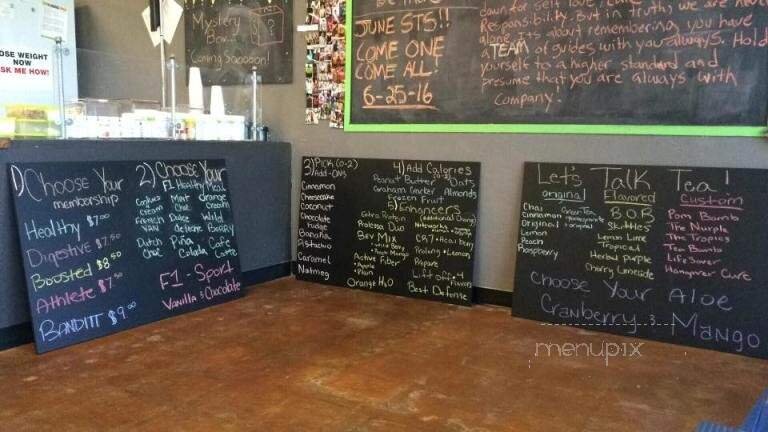 Mystery
Box
Coming Sooooon!
?
OSE WEIGHT
NOW
SK ME HOW!
JUNE STS!!
COME ONE
COME ALL!
6-25-16
down for self love,
Responsibility. But in truth, we are never
alone. Its about remembering you have
TEAM of guides with you always. Hold
yourself to a higher standard and
presume that you are always with
Company!
1) Choose Your
membership
Healthy $7.00
Digestive $7.50
Boosted $8.50
Athlete $7.50
BANDITT $9.00
2) Choose Your
F1 Healthy Meal
Cookies
Cream
French
VAN
Dutch
Choc
Mint
Choc
Dulce
de leche
Piña
Colada
Orange
Cream
Wild
Berry
Cafe
Latte
F1 - Sport
Vanilla & Chocolate
3) Pick (0-2)
Add-ons
Cinnamon
Cheesecake
Coconut
Chocolate
Fudge
Banana
Pistachio
Caramel
Nutmeg
4) Add Calories
Peanut Butter Oats
Graham Cracker Almonds
Frozen Fruit
5) Enhancers
(additional charge)
Extra Protein
Protessa Duo
Bev Mix
Active Fiber
• Plain
Orange H2O
CR7 • Acai berry
Prolong • Lemon
Prepare
Lift off • 4
Flavors
Best Defense
Let's Talk Tea!
original
Chai
Cinnamon
Original
Lemon
Peach
Raspberry
Green Tea
• pomegranate
• original
Flavored
B.O.B
Skittles
Lemon Lime
Tropical
Herbal purple
Cherry Limeade
Custom
Pom Bomb
The Nurple
The Tropics
Ten Bomb
Life Saver
Hangover Cure
Choose Your Aloe
Cranberry & Mango
menupix